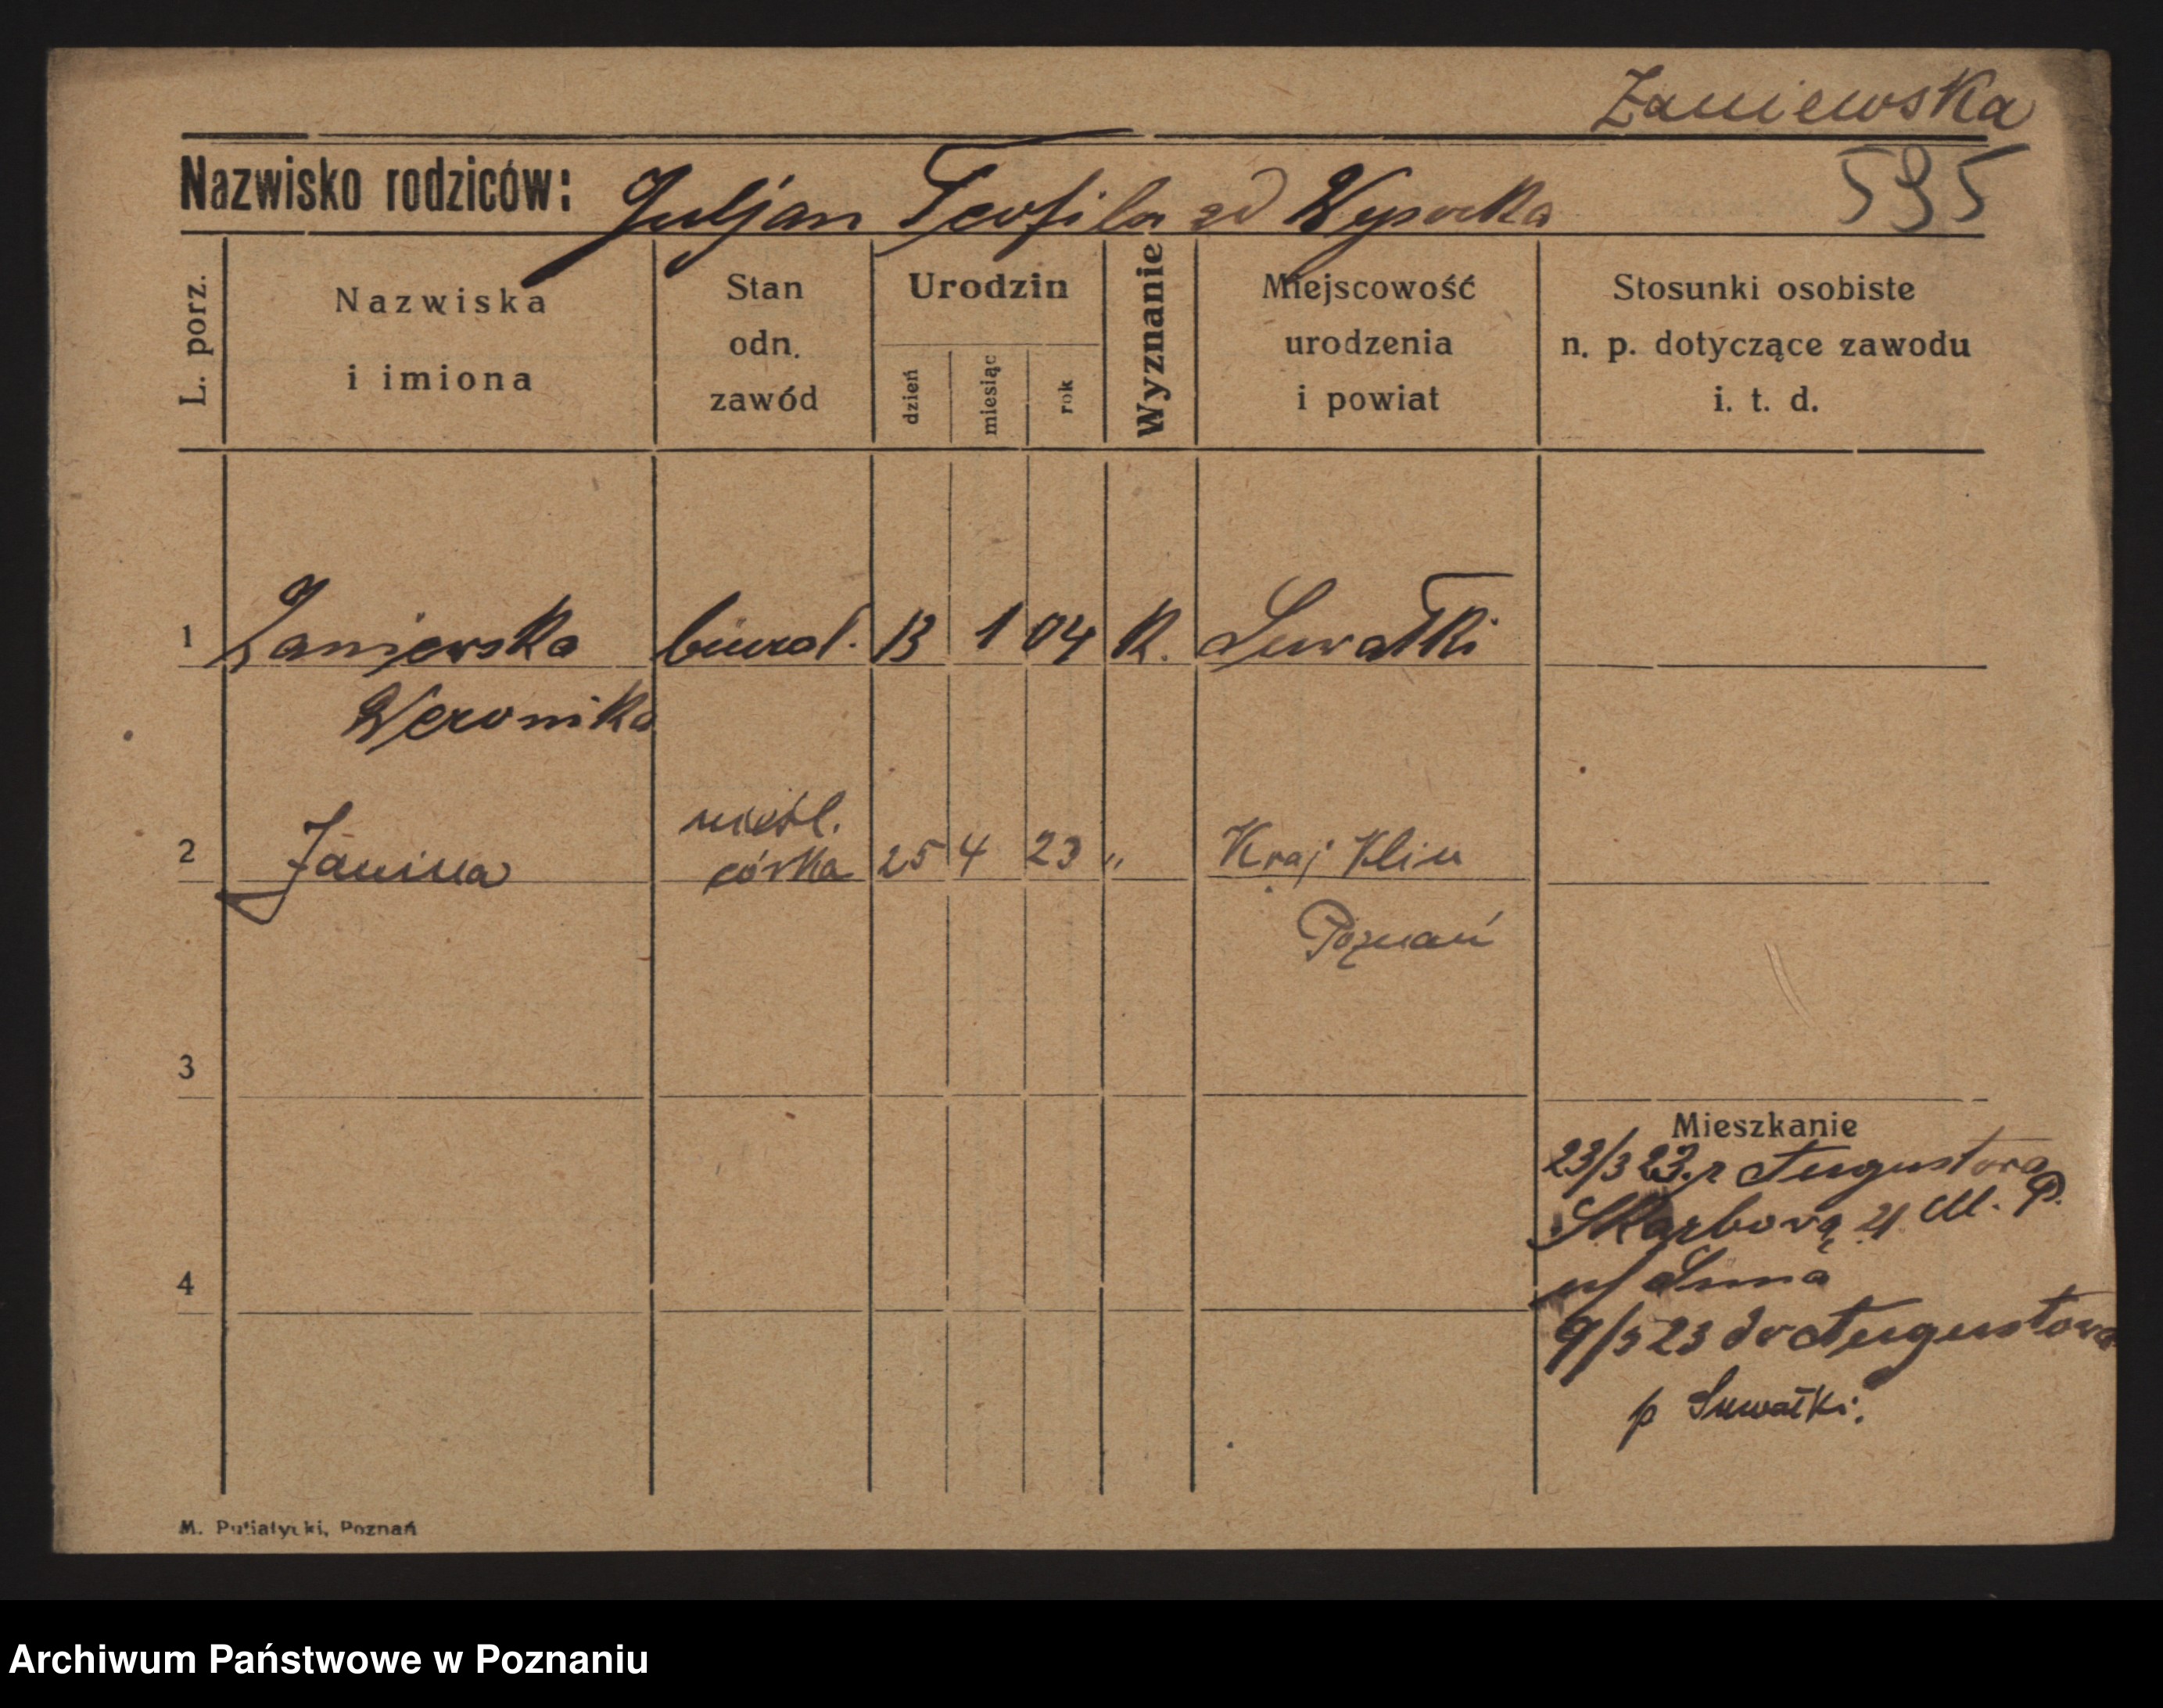 Zaniewska
595
Nazwisko rodziców: Juljan Teofila zd Wysocka
L. porz.
Nazwiska
i imiona
Stan
odn.
zawód
Urodzin
dzień
miesiąc
rok
Wyznanie
Miejscowość
urodzenia
i powiat
Stosunki osobiste
n. p. dotyczące zawodu
i. t. d.
1 Zaniewska biural. 13 1 04 K. Suwałki
Weronika
nieśl.
2 Janina córka 25 4 23 „ Kraj Klin
Poznań
3
Mieszkanie
23/3 23. z Augustowa
Skarbowa 21 M. P.
4
9/5 23 do Augustowa
p Suwałki.
M. Putiatycki, Poznań
Archiwum Państwowe w Poznaniu